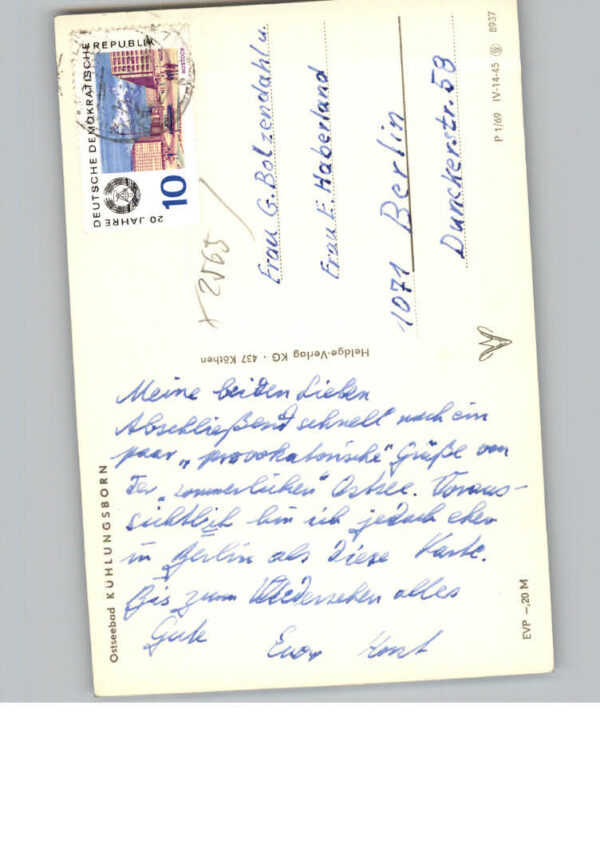 Meine beiden Lieben
Abschließend schnell noch ein
paar „provokatorische“ Grüße von
der „sommerlichen“ Ostsee. Voraus-
sichtlich bin ich jedoch eher
in Berlin als diese Karte.
Bis zum Wiedersehen alles
Gute Euer
Ostseebad KÜHLUNGSBORN
EVP –,20 M
Heldge-Verlag KG · 437 Köthen
DEUTSCHE DEMOKRATISCHE
REPUBLIK
20 JAHRE
10
ROSTOCK
+ 2565
Frau G. Bolzendahl u.
Frau E. Haberland
1071 Berlin
Dunckerstr. 58
P 1/69 IV-14-45 8937